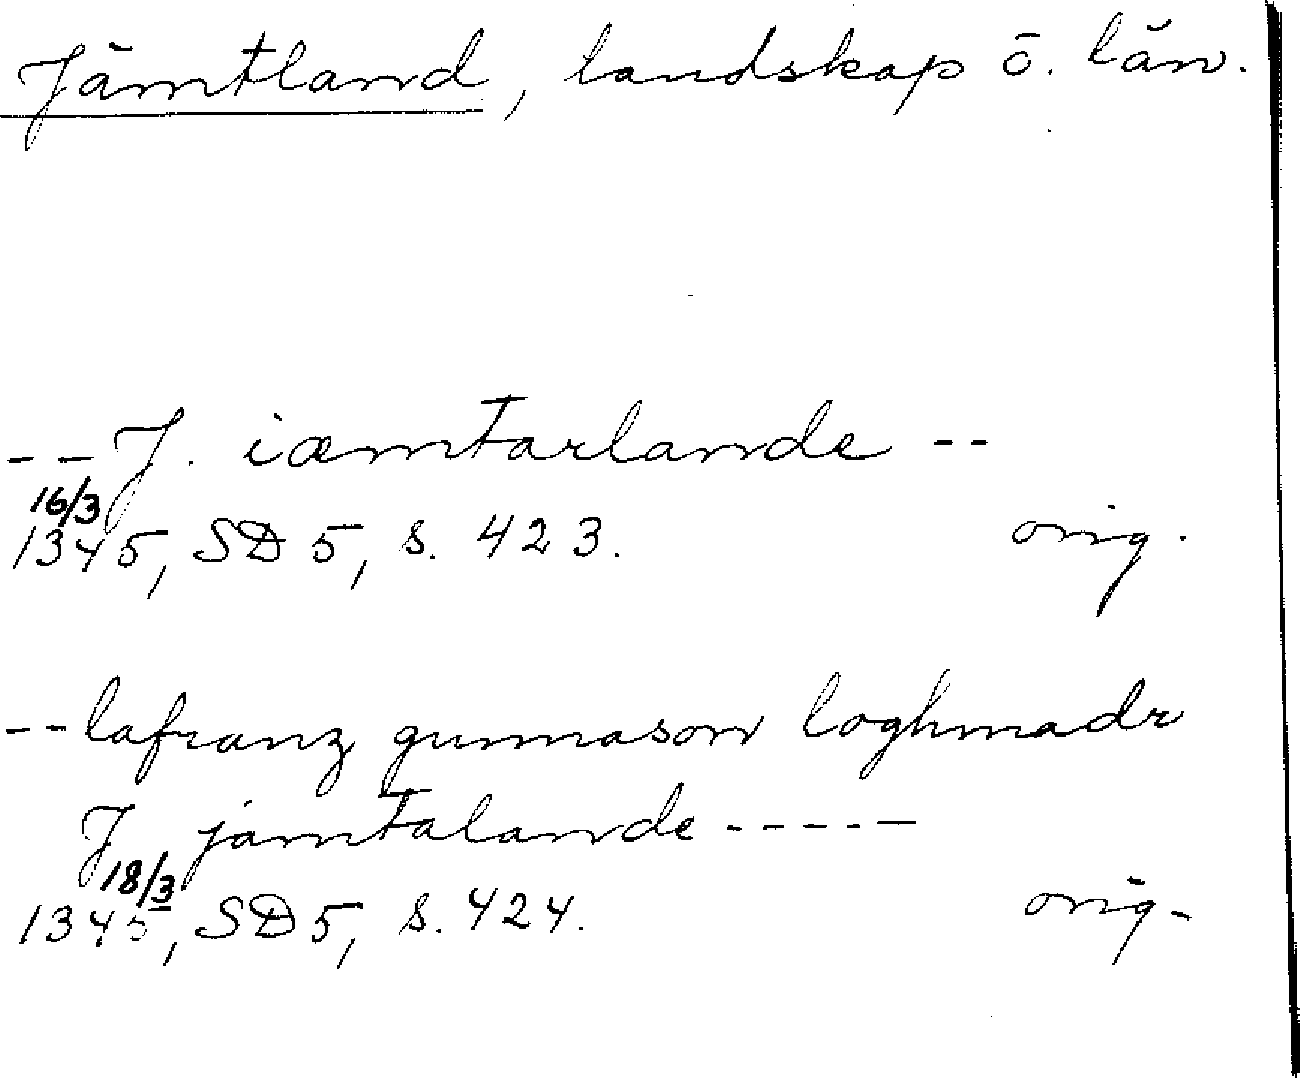 Jämtland, landskap o. län.
-- J. iæmtarlande --
16/3
1345, SD 5, s. 423. orig.
-- lafranz gunnason loghmadr
J jamtalande -----
18/3
1345, SD 5, s. 424. orig-